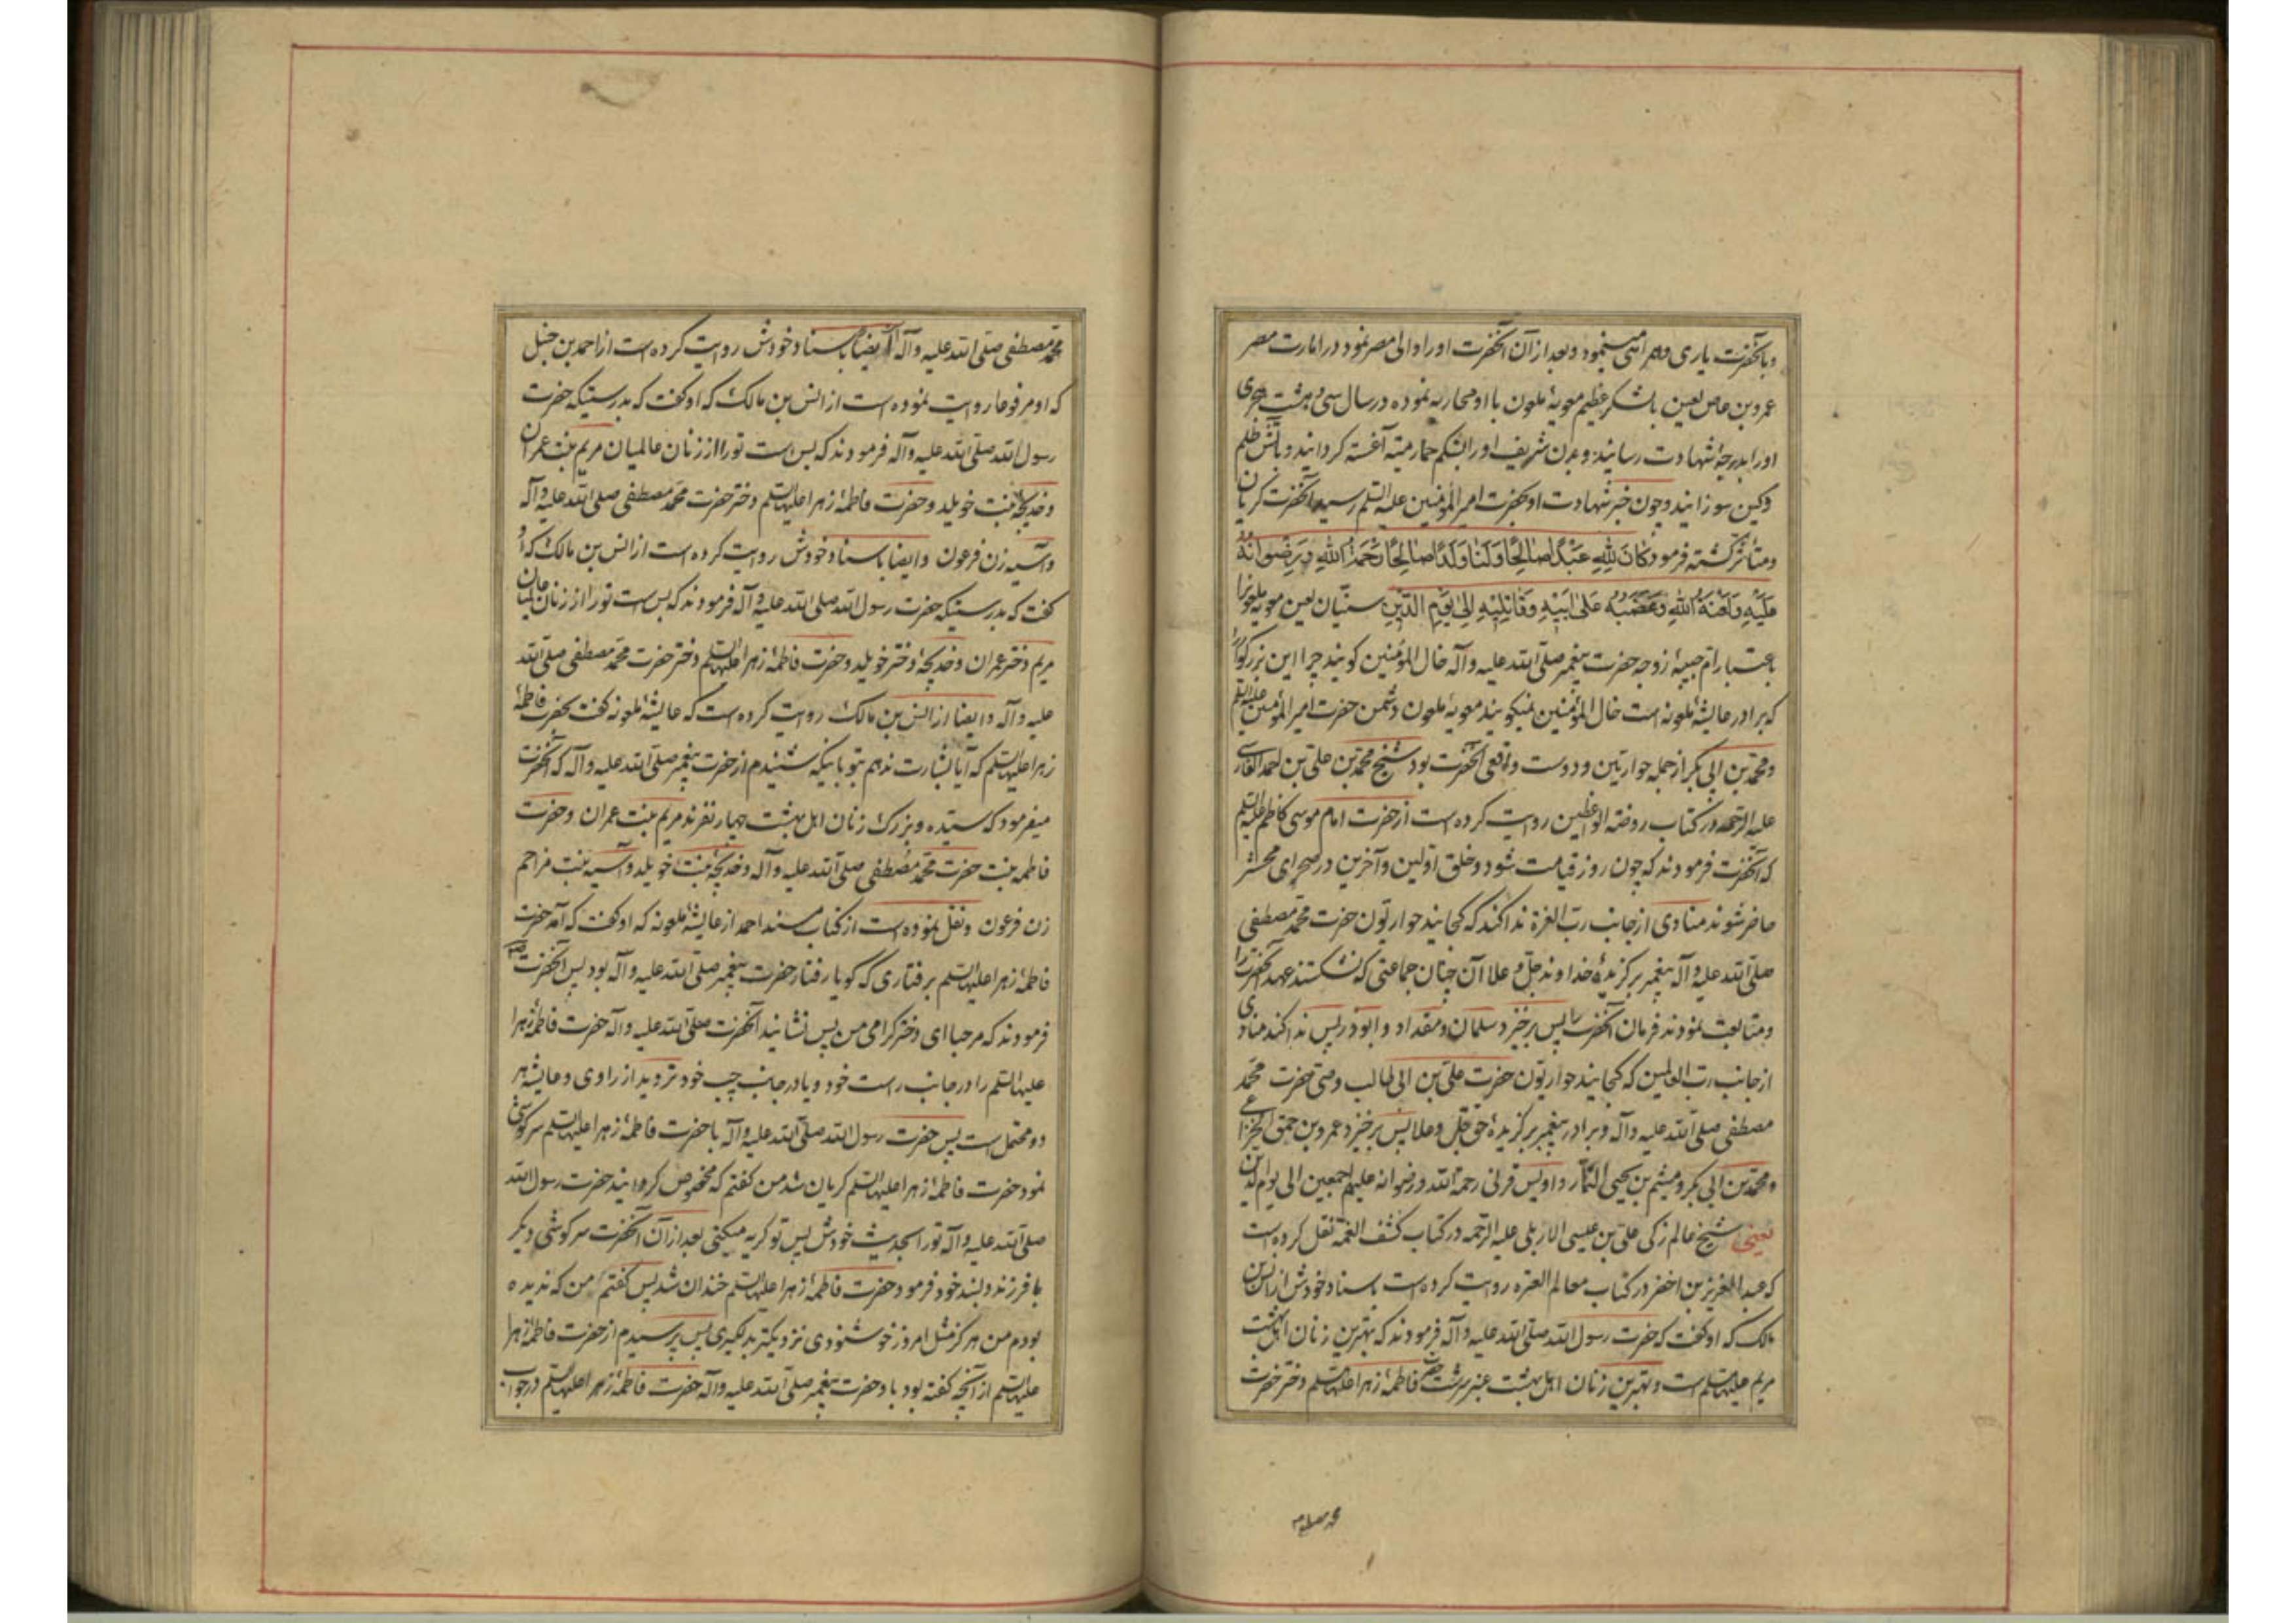 وبآنحضرت یاری وهمراهی مینمود وبعد از آن آنحضرت اورا والی مصر نمود در امارت مصر
عمرو بن عاص لعین با لشکر عظیم معویهٔ ملعون با او محاربه نموده در سال سی وهشت هجری
اورا بدرجهٔ شهادت رسانیدند وبدن شریف اورا در شکم حمار میته آغشته کردانیدند وبآتش ظلم
وکین سوزانیدند وچون خبر شهادت او بحضرت امیر المؤمنین علیه السّلم رسید آنحضرت کریان
ومتأثر کشته فرمود کَانَ لِلّٰهِ عَبْدًا صَالِحًا وَلَنَا وَلَدًا صَالِحًا رَحْمَةُ اللّٰهِ وَرِضْوَانُهُ
عَلَیْهِ وَلَعْنَةُ اللّٰهِ وَغَضَبُهُ عَلیٰ اَبِیْهِ وَقَاتِلِیْهِ اِلیٰ یَوْمِ الدّیْنِ سنّیان لعین معویهٔ ملعونرا
باعتبار ام حبیبهٔ زوجه حضرت پیغمبر صلّی الله علیه وآله خال المؤمنین کویند چرا این بزرکوار را
که برادر عایشهٔ ملعونه است خال المؤمنین نمیکویند معویهٔ ملعون دشمن حضرت امیر المؤمنین علیه السّلم
ومحمّد بن ابی بکر از جمله حواریّین ودوست واقعی آنحضرت بود شیخ محمّد بن علی بن احمد الفارسی
علیه الرّحمه در کتاب روضة الواعظین روایت کرده است از حضرت امام موسی کاظم علیه السّلم
که آنحضرت فرمودند که چون روز قیامت شود وخلق اوّلین وآخرین در صحرای محشر
حاضر شوند منادی از جانب ربّ العزة ندا کند که کجایند حواریّون حضرت محمّد مصطفی
صلّی الله علیه وآله پیغمبر برکزیدهٔ خداوند جلّ وعلا آن چنان جماعتی که نشکستند عهد آنحضرت را
ومتابعت نمودند فرمان آنحضرت را پس برخیزد سلمان ومقداد وابوذر پس ندا کند منادی
از جانب ربّ العالمین که کجایند حواریّون حضرت علیّ بن ابی طالب وصیّ حضرت محمّد
مصطفی صلّی الله علیه وآله وبرادر پیغمبر برکزیدهٔ حق جلّ وعلا پس برخیزد عمرو بن حمق الخزاعی
ومحمّد بن ابی بکر ومیثم بن یحیی التمّار واویس قرنی رحمة الله ورضوانه علیهم اجمعین الی یوم الدین
یعنی شیخ عالم زکی علیّ بن عیسی الاربلی علیه الرّحمه در کتاب کشف الغمّه نقل کرده است
که عبد العزیز بن اخضر در کتاب معالم العتره روایت کرده است باسناد خودش از انس بن
مالک که او کفت که حضرت رسول الله صلّی الله علیه وآله فرمودند که بهترین زنان اهل بهشت
مریم علیها السّلم است وبهترین زنان اهل بهشت عنبر سرشت حضرت فاطمهٔ زهرا علیها السّلم دختر حضرت
محمد مصطفی
محمّد مصطفی صلّی الله علیه وآله ایضا باسناد خودش روایت کرده است از احمد بن حنبل
که او مرفوعا روایت نموده است از انس بن مالک که او کفت که بدرستیکه حضرت
رسول الله صلّی الله علیه وآله فرمودند که بس است تورا از زنان عالمیان مریم بنت عمران
وخدیجهٔ بنت خویلد وحضرت فاطمهٔ زهرا علیها السّلم دختر حضرت محمّد مصطفی صلّی الله علیه وآله
وآسیه زن فرعون وایضا باسناد خودش روایت کرده است از انس بن مالک که او
کفت که بدرستیکه حضرت رسول الله صلّی الله علیه وآله فرمودند که بس است تورا از زنان عالمیان
مریم دختر عمران وخدیجهٔ دختر خویلد وحضرت فاطمهٔ زهرا علیها السّلم دختر حضرت محمّد مصطفی صلّی الله
علیه وآله وایضا از انس بن مالک روایت کرده است که عایشهٔ ملعونه کفت بحضرت فاطمهٔ
زهرا علیها السّلم که آیا بشارت ندهم بتو باینکه شنیدم از حضرت پیغمبر صلّی الله علیه وآله که آنحضرت
میفرمود که سیّده وبزرک زنان اهل بهشت چهار نفرند مریم بنت عمران وحضرت
فاطمه بنت حضرت محمّد مصطفی صلّی الله علیه وآله وخدیجهٔ بنت خویلد وآسیه بنت مزاحم
زن فرعون ونقل نموده است از کتاب مسند احمد از عایشهٔ ملعونه که او کفت که آمد حضرت
فاطمهٔ زهرا علیها السّلم برفتاری که کویا رفتار حضرت پیغمبر صلّی الله علیه وآله بود پس آنحضرت
فرمودند که مرحبا ای دختر کرامی من پس نشانید آنحضرت صلّی الله علیه وآله حضرت فاطمهٔ زهرا
علیها السّلم را در جانب راست خود ویا در جانب چپ خود تردید از راوی وعایشه هر
دو محتمل است پس حضرت رسول الله صلّی الله علیه وآله با حضرت فاطمهٔ زهرا علیها السّلم سرکوشی
نمود حضرت فاطمهٔ زهرا علیها السّلم کریان شد من کفتم که مخصوص کردانید حضرت رسول الله
صلّی الله علیه وآله تورا بحدیث خودش پس تو کریه میکنی بعد از آن آنحضرت سرکوشی دیکر
با فرزند دلبند خود فرمود حضرت فاطمهٔ زهرا علیها السّلم خندان شد پس کفتم من که ندیده
بودم من هرکز مثل امروز خوشنودی نزدیکتر بدلکیری پس پرسیدم از حضرت فاطمهٔ زهرا
علیها السّلم از آنچه کفته بود باو حضرت پیغمبر صلّی الله علیه وآله حضرت فاطمهٔ زهرا علیها السّلم در جواب